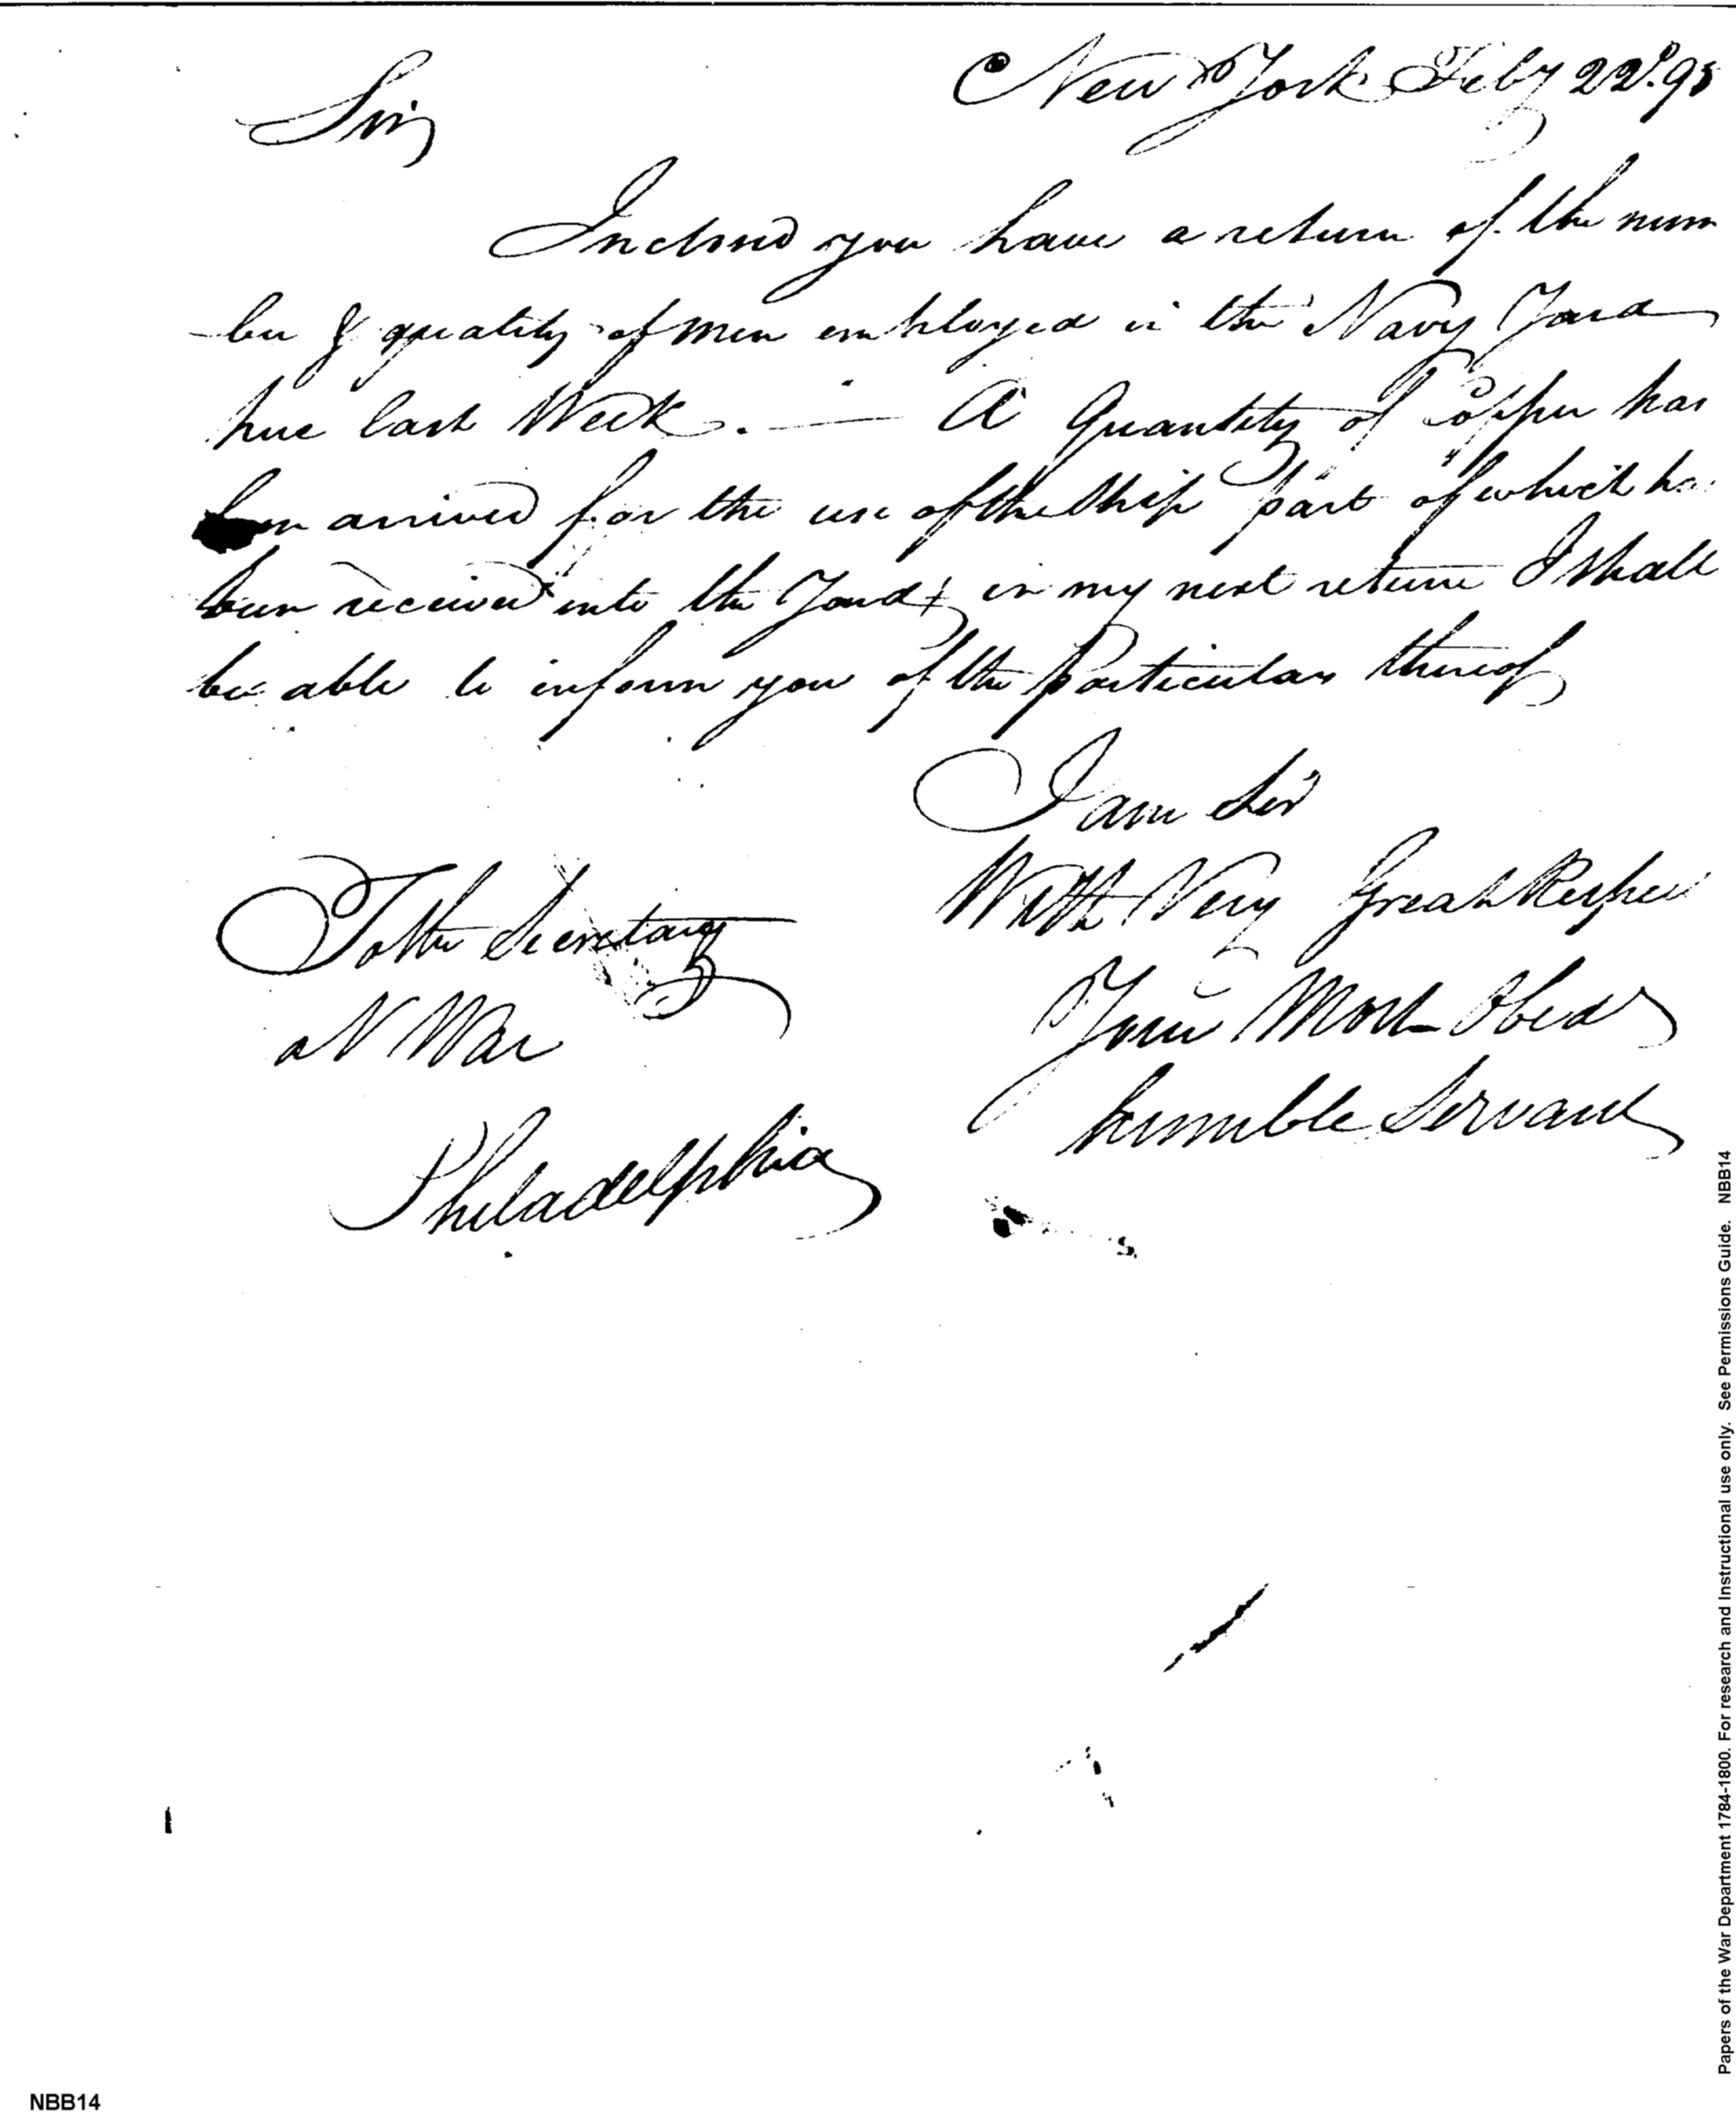 New York Feby 22d. 95
Sir
Inclosed you have a return of the num
-ber & quality of men employed in the Navy Yard
here last Week. — A Quantity of Copper has
been arrived for the use of the Ship part of which ha
been received into the Yard & in my next return I shall
be able to inform you of the Particulars thereof
I am Sir
With Very Great Respec
Your Most Obed
humble Servant
To the Secretary
at War
Philadelphia
Papers of the War Department 1784-1800. For research and Instructional use only. See Permissions Guide. NBB14
NBB14